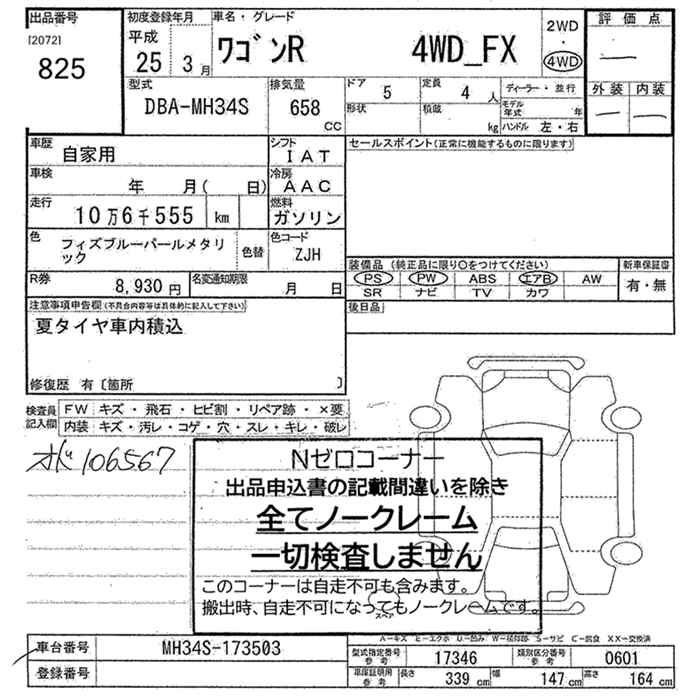 出品番号
[2072]
825
初度登録年月
平成
25 3月
車名・グレード
ワゴンR 4WD_FX
2WD
・
4WD
評価点
—
外装 内装
— —
型式
DBA-MH34S
排気量
658
CC
ドア 5
定員 4人
形状
積載 kg
ディーラー・並行
モデル年式 年
ハンドル 左・右
車歴
自家用
シフト
IAT
セールスポイント(正常に機能するものに限ります)
車検
年 月( 日)
冷房
AAC
走行
10万6千555 km
燃料
ガソリン
色
フィズブルーパールメタリ
ック
色替
色コード
ZJH
装備品 (純正品に限り○をつけてください)
新車保証書
PS PW ABS エアB AW
有・無
SR ナビ TV カワ
R券
8,930円
名変通知期限
月 日
後日品
注意事項申告欄(不具合内容等は具体的に記入して下さい)
夏タイヤ車内積込
修復歴 有〔箇所 〕
検査員
記入欄
FW キズ・飛石・ヒビ割・リペア跡・×要
内装 キズ・汚レ・コゲ・穴・スレ・キレ・破レ
オド106567
Nゼロコーナー
出品申込書の記載間違いを除き
全てノークレーム
一切検査しません
このコーナーは自走不可も含みます。
搬出時、自走不可になってもノークレームです。
スペア
車台番号
MH34S-173503
登録番号
型式指定番号
参考
17346
類別区分番号
参考
0601
車庫証明用
参考
長さ 339cm
幅 147cm
高さ 164cm